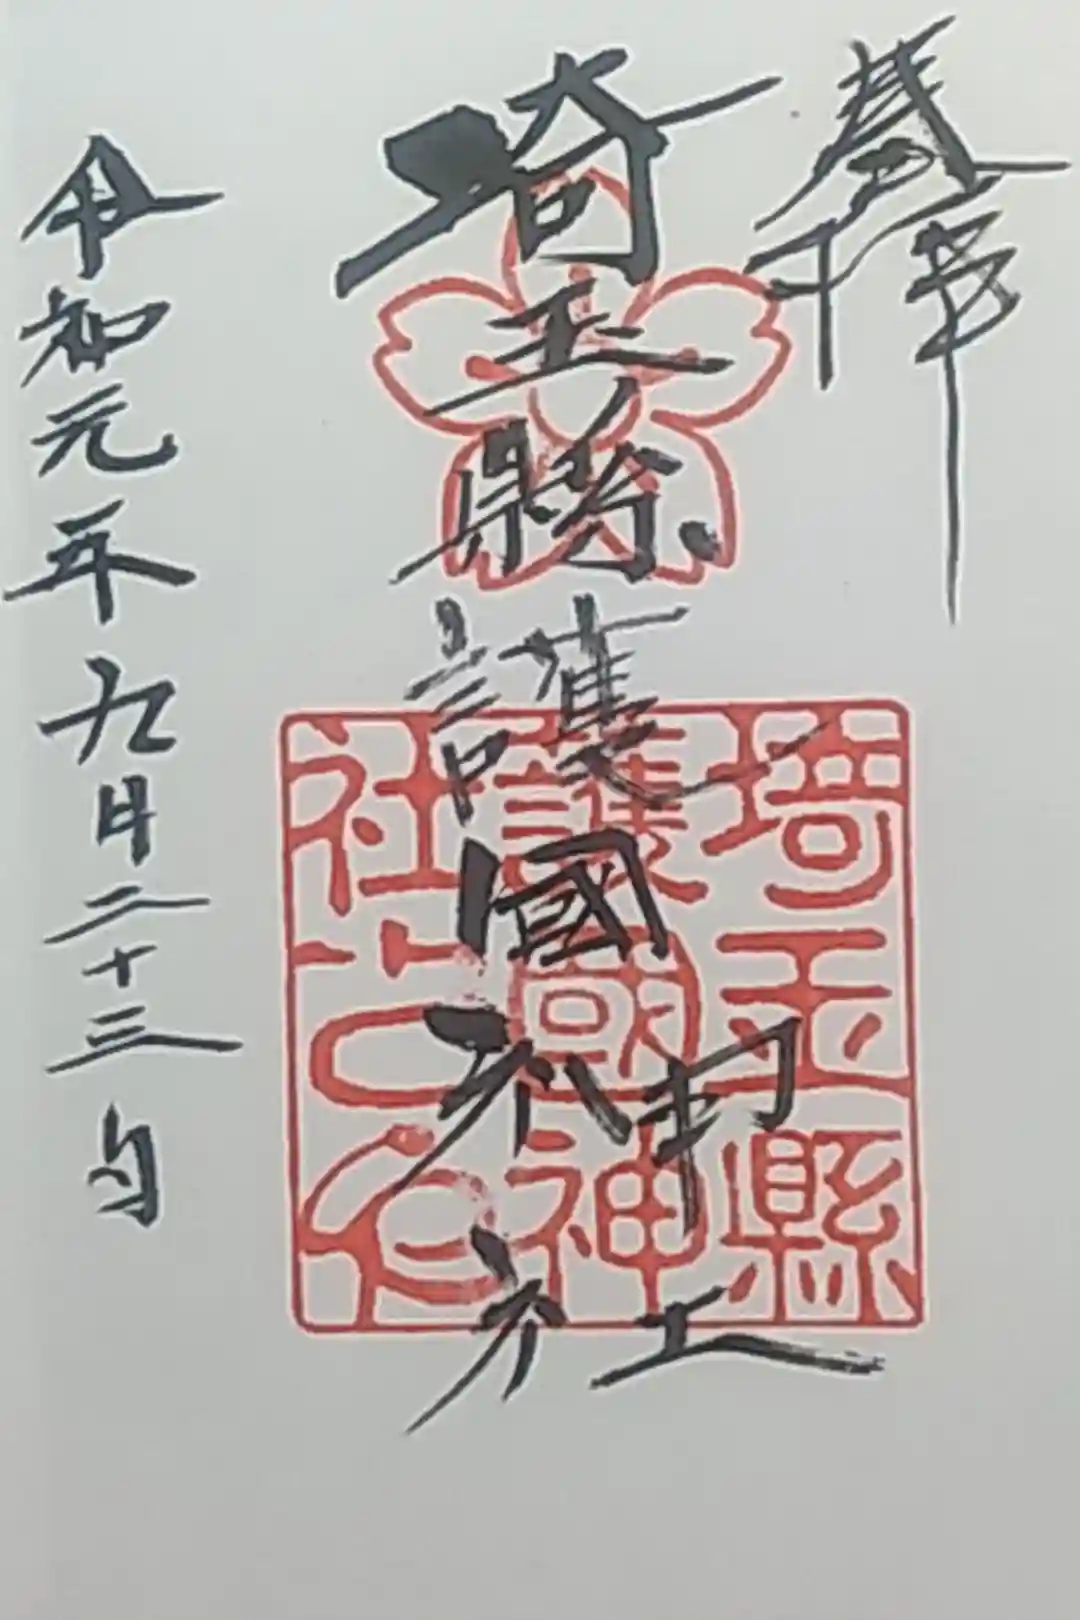 奉拝
埼玉縣護國神社
令和元年九月二十三日
埼玉縣
護國神
社之印